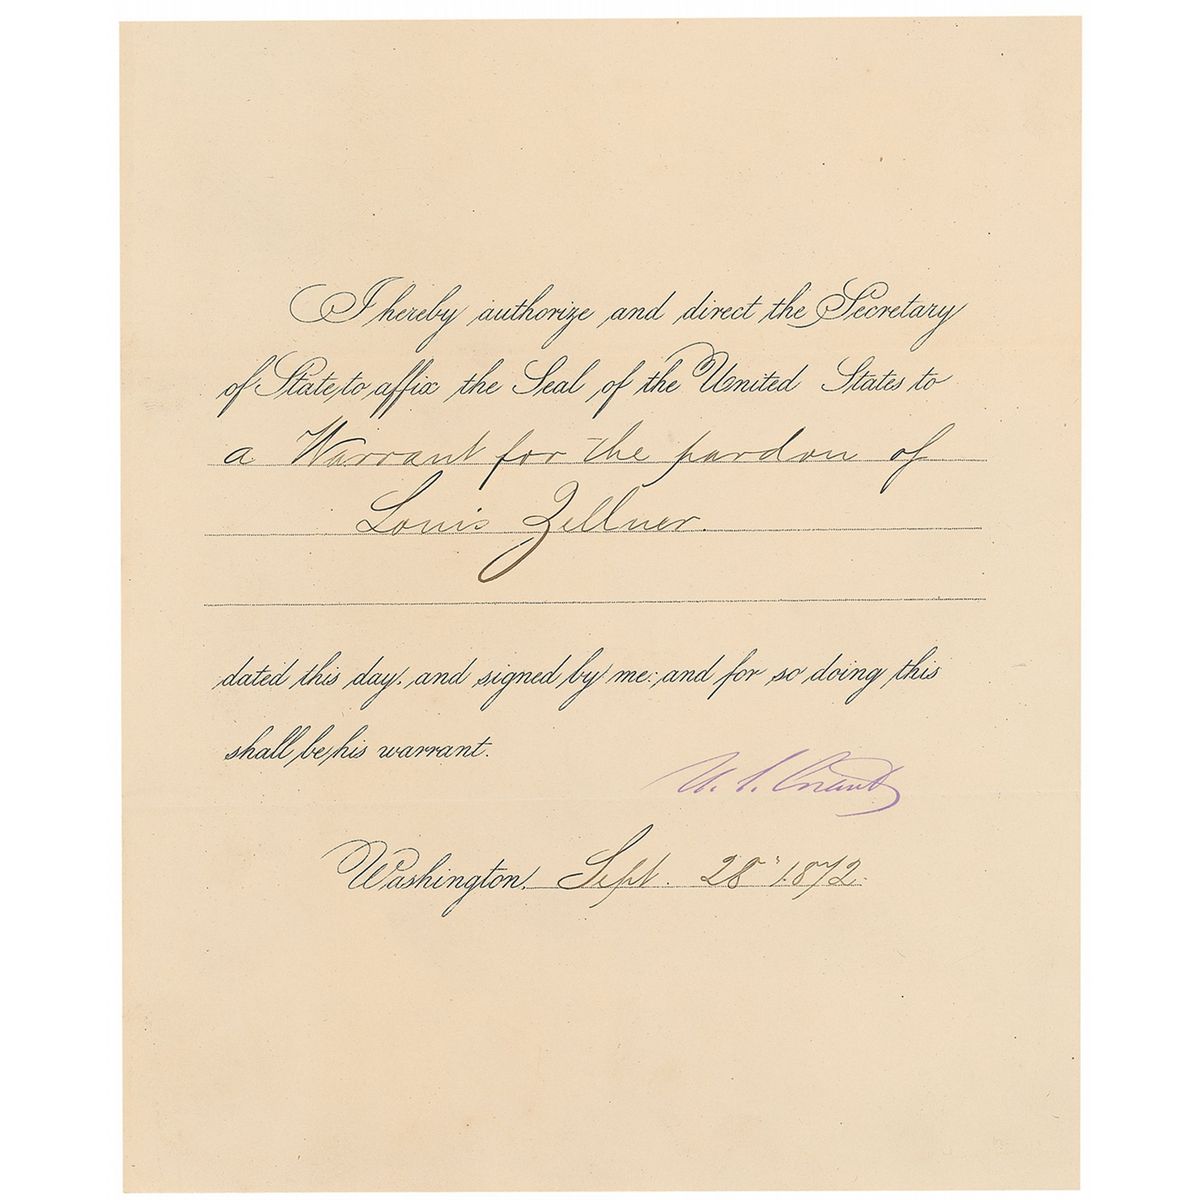 I hereby authorize and direct the Secretary
of State to affix the Seal of the United States to
a Warrant for the pardon of
Louis Zellner.
dated this day, and signed by me: and for so doing this
shall be his warrant.
U. S. Grant
Washington, Sept. 28" 1872.